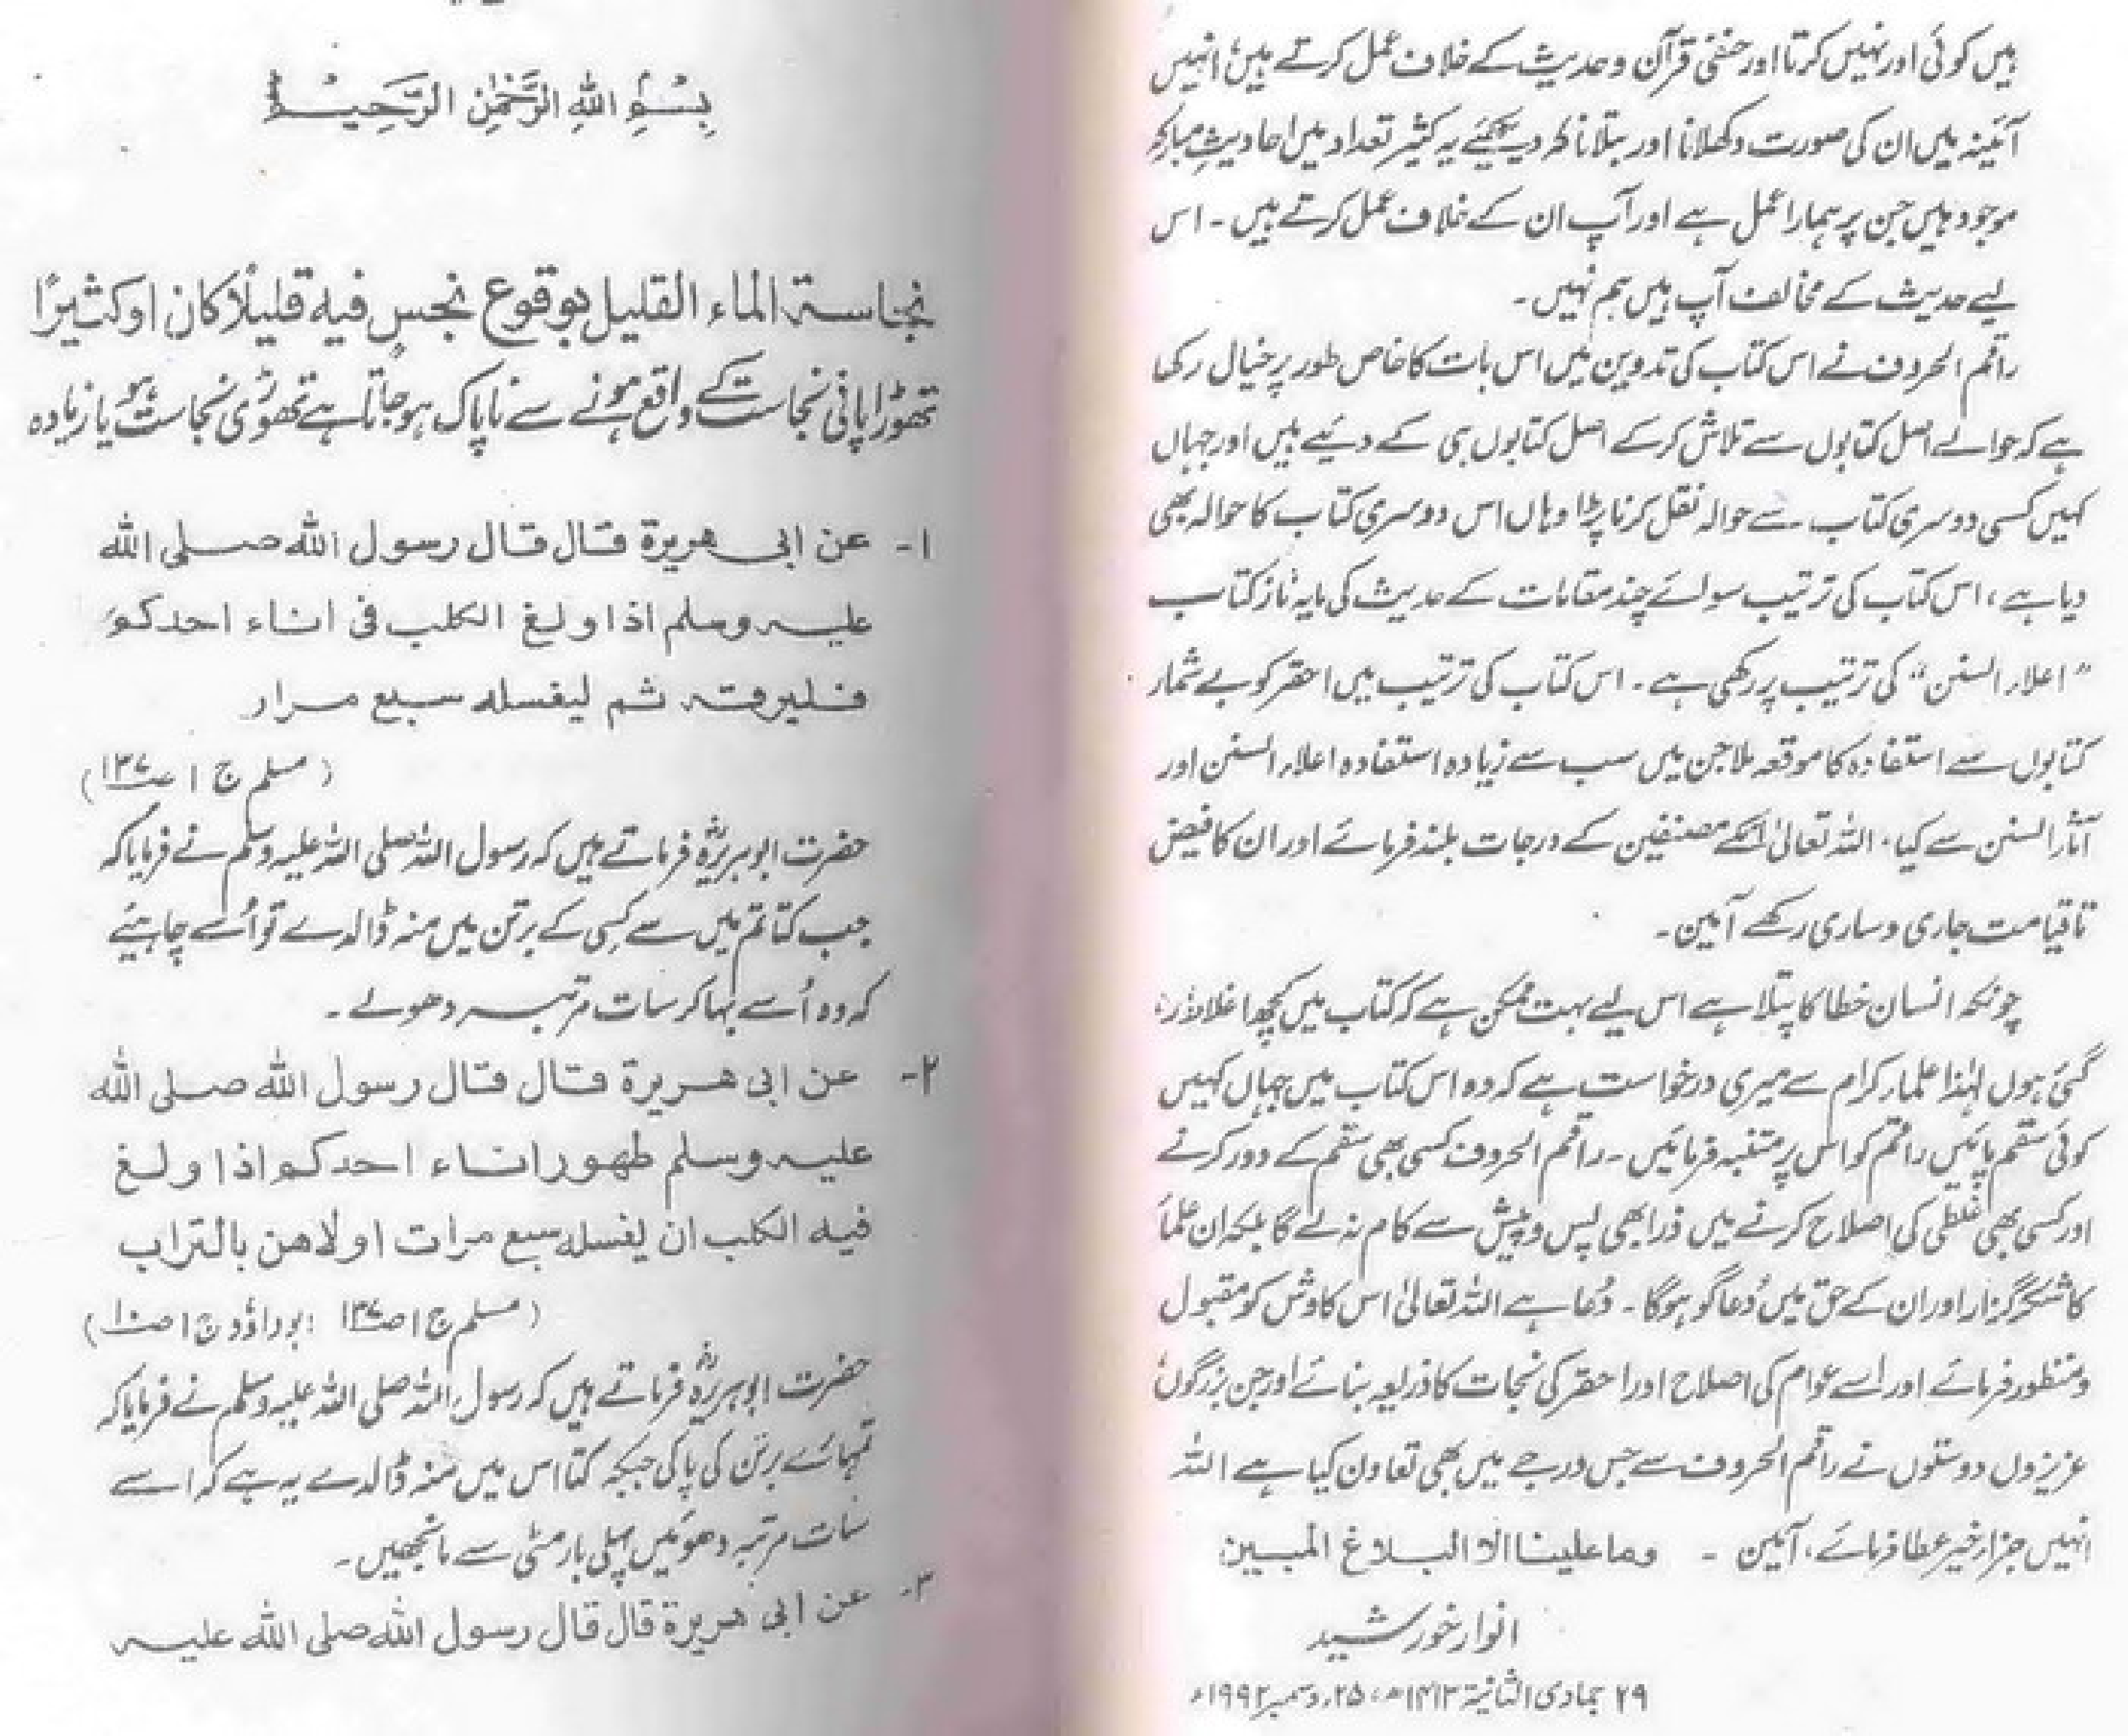 ہیں کوئی اور نہیں کرتا اور حنفی قرآن و حدیث کے خلاف عمل کرتے ہیں، انہیں
آئینہ میں ان کی صورت دکھلانا اور بتلانا کہ دیکھئے یہ کثیر تعداد میں احادیثِ مبارکہ
موجود ہیں جن پر ہمارا عمل ہے اور آپ ان کے خلاف عمل کرتے ہیں۔ اس
لیے حدیث کے مخالف آپ ہیں ہم نہیں۔
راقم الحروف نے اس کتاب کی تدوین میں اس بات کا خاص طور پر خیال رکھا
ہے کہ حوالے اصل کتابوں سے تلاش کرکے اصل کتابوں ہی کے دئیے ہیں اور جہاں
کہیں کسی دوسری کتاب سے حوالہ نقل کرنا پڑا وہاں اس دوسری کتاب کا حوالہ بھی
دیا ہے، اس کتاب کی ترتیب سوائے چند مقامات کے حدیث کی مایہ ناز کتاب
"اعلاء السنن" کی ترتیب پر رکھی ہے۔ اس کتاب کی ترتیب میں احقر کو بے شمار
کتابوں سے استفادہ کا موقعہ ملا جن میں سب سے زیادہ استفادہ اعلاء السنن اور
آثار السنن سے کیا۔ اللہ تعالیٰ انکے مصنفین کے درجات بلند فرمائے اور ان کا فیض
تا قیامت جاری و ساری رکھے آمین۔
چونکہ انسان خطا کا پتلا ہے اس لیے بہت ممکن ہے کہ کتاب میں کچھ اغلاط رہ
گئی ہوں لہٰذا علماء کرام سے میری درخواست ہے کہ وہ اس کتاب میں جہاں کہیں
کوئی سقم پائیں راقم کو اس پر متنبہ فرمائیں۔ راقم الحروف کسی بھی سقم کے دور کرنے
اور کسی بھی غلطی کی اصلاح کرنے میں ذرا بھی پس و پیش سے کام نہ لے گا بلکہ ان علماء
کا شکر گزار اور ان کے حق میں دُعا گو ہوگا۔ دُعا ہے اللہ تعالیٰ اس کاوش کو مقبول
و منظور فرمائے اور اسے عوام کی اصلاح اور احقر کی نجات کا ذریعہ بنائے اور جن بزرگوں
عزیزوں دوستوں نے راقم الحروف سے جس درجے میں بھی تعاون کیا ہے اللہ
انہیں جزاء خیر عطا فرمائے، آمین ۔ وما علینا الا البلاغ المبین
انوار خورشید
۲۹ جمادی الثانیۃ ۱۴۱۳ھ، ۲۵ دسمبر ۱۹۹۲ء
بِسْمِ اللهِ الرَّحْمٰنِ الرَّحِيْمِ
نجاسۃ الماء القلیل بوقوع نجسٍ فیہ قلیلًا کان او کثیرًا
تھوڑا پانی نجاست کے واقع ہونے سے ناپاک ہو جاتا ہے تھوڑی نجاست ہو یا زیادہ
۱۔ عن ابی ھریرۃ قال قال رسول اللہ صلی اللہ
علیہ وسلم اذا ولغ الکلب فی اناء احدکم
فلیرقہ ثم لیغسلہ سبع مرار
(مسلم ج ۱ ص۱۳۷)
حضرت ابو ہریرہؓ فرماتے ہیں کہ رسول اللہ صلی اللہ علیہ وسلم نے فرمایا کہ
جب کتا تم میں سے کسی کے برتن میں منہ ڈالدے تو اُسے چاہیئے
کہ وہ اُسے بہا کر سات مرتبہ دھولے۔
۲۔ عن ابی ھریرۃ قال قال رسول اللہ صلی اللہ
علیہ وسلم طھور اناء احدکم اذا ولغ
فیہ الکلب ان یغسلہ سبع مرات اولاھن بالتراب
(مسلم ج۱ ص۱۳۷ ابوداؤد ج۱ ص۱۰)
حضرت ابوہریرہؓ فرماتے ہیں کہ رسول اللہ صلی اللہ علیہ وسلم نے فرمایا کہ
تمہارے برتن کی پاکی جبکہ کتا اس میں منہ ڈالدے یہ ہے کہ اسے
سات مرتبہ دھوئیں پہلی بار مٹی سے مانجھیں۔
۳۔ عن ابی ھریرۃ قال قال رسول اللہ صلی اللہ علیہ